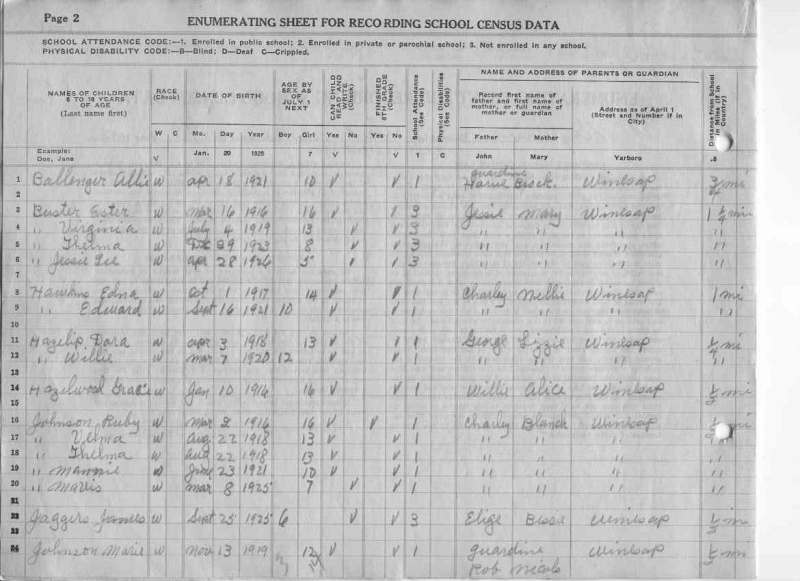 Page 2
ENUMERATING SHEET FOR RECORDING SCHOOL CENSUS DATA
SCHOOL ATTENDANCE CODE:—1. Enrolled in public school; 2. Enrolled in private or parochial school; 3. Not enrolled in any school.
PHYSICAL DISABILITY CODE:—B—Blind; D—Deaf C—Crippled.
NAMES OF CHILDREN 6 TO 18 YEARS OF AGE (Last name first) RACE (Check) DATE OF BIRTH AGE BY SEX AS OF JULY 1 NEXT CAN CHILD READ AND WRITE (Check) FINISHED 8TH GRADE (Check) School Attendance (See Code) Physical Disabilities (See Code) NAME AND ADDRESS OF PARENTS OR GUARDIAN Distance from School in Miles (if in Country)
Record first name of father and first name of mother, or full name of mother or guardian Address as of April 1 (Street and Number if in City)
W C Mo. Day Year Boy Girl Yes No Yes No Father Mother
Example: Doe, Jane V Jan. 20 1925 7 V V 1 C John Mary Yarboro .8
guardine
1 Ballenger Allie W apr 18 1921 10 V V 1 Brock Winesap 3/4 mi
2
3 Buster Ester W mar 16 1916 16 V V 3 Jessie Mary Winesap 1 1/4 mi
4 " Virginia W July 4 1919 13 V V 3 " " " "
5 " Thelma W Dec 1923 8 V V 3 " " " "
6 " Jessie Lee W apr 28 1926 5 V V 3 " " " "
7
8 Hawkins Edna W Oct 1 1917 14 V V 1 Charley Nellie Winesap 1 mi
9 " Edward W Sept 16 1921 10 V V 1 " " " "
10
11 Hazelip Dora W apr 3 1918 13 V V 1 George Lizzie Winesap mi
12 " Willie W mar 7 1920 12 V V 1 " " " "
13
14 Hazelwood Gracie W Jan 10 1916 16 V V 1 Willie Alice Winesap 1/2 mi
15
16 Johnson Ruby W Mar 2 1916 16 V V 1 Charley Blanch Winesap 1/2 mi
17 " Velma W Aug 22 1918 13 V V 1 " " " "
18 " Thelma W Aug 22 1918 13 V V 1 " " " "
19 " Mannie W June 23 1921 10 V V 1 " " " "
20 " Mavis W mar 8 1925 7 V V 1 " " " "
21
22 Jaggers James W Sept 25 1925 6 V V 3 Elige Bessie Winesap 1/2 mi
23
24 Johnson Marie W nov 13 1919 12 V V 1 guardine Winesap 1/2 mi
Rob